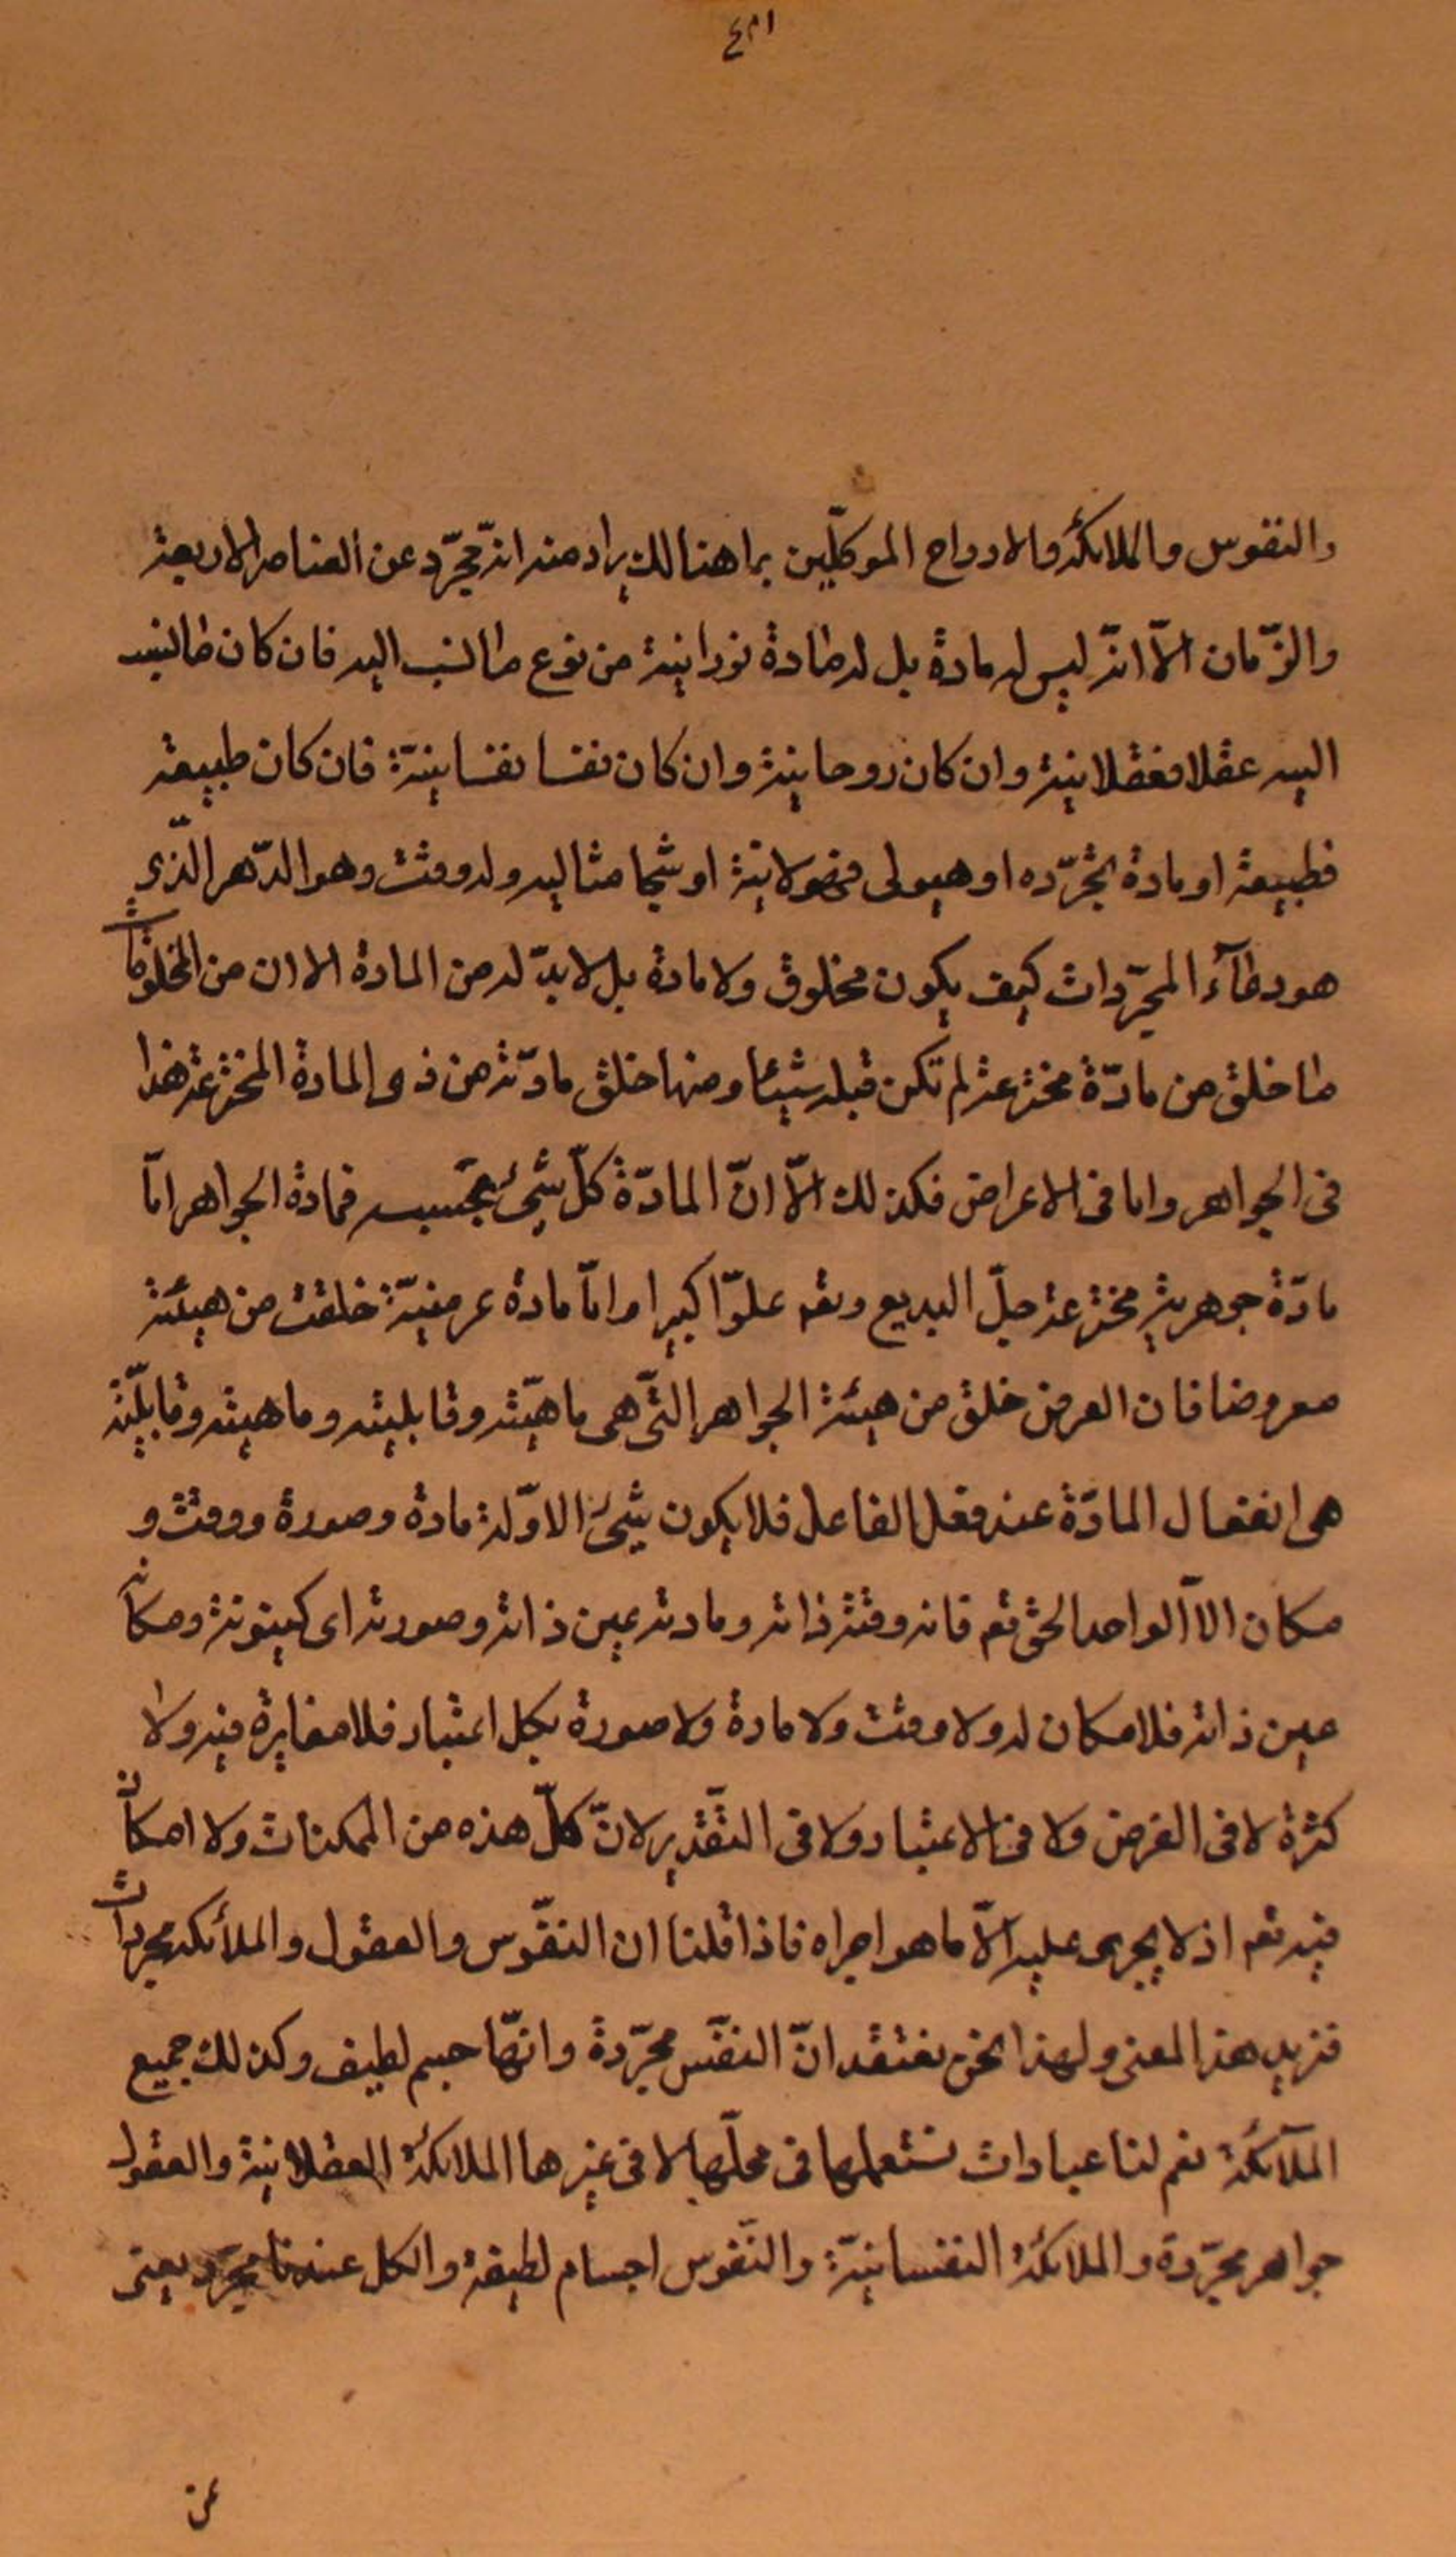 والنفوس والملائكة والارواح الموكلّين بما هنالك يراد منه انّه مجرّد عن العناصر الاربعة
والزّمان الّا انّه ليس له مادة بل له مادة نورانية من نوع ما نسب اليه فان كان ما نسب
اليه عقلا فعقلانية وان كان روحانية وان كان نفسا نفسانيّة فان كان طبيعة
فطبيعة او مادة مجرّده او هيولى فهيولانية او شبحا مثاليه وله وقت وهو الدّهر الّذي
هو دعآء المجرّدات كيف يكون مخلوق ولا مادة بل لابدّ له من المادة الا ان من المخلوقات
ما خلق من مادّة مخترعة لم تكن قبله شيئا ومنها خلق مادّته من ذى المادة المخترعة هذا
فى الجواهر واما فى الاعراض فكذلك الّا انّ المادّة كلّ شىء بحسبه فمادة الجواهر امّا
مادّة جوهرية مخترعة جلّ البديع وتعم علوّا كبيرا وامّا مادة عرضيّة خلقت من هيئة
معروضا فان العرض خلق من هيئة الجواهر الّتى هى ماهيّته وقابليته وماهيته وقابليّته
هى انفعال المادّة عند فعل الفاعل فلا يكون شىء الا وله مادة وصورة ووقت و
مكان الاّ الواحد الحق تعم فانه وقته ذاته ومادته عين ذاته وصورته اى كينونته ومكانه
عين ذاته فلا مكان له ولا وقت ولا مادة ولا صورة بكل اعتبار فلا مغايرة فيه ولا
كثرة لا فى الفرض ولا فى الاعتبار ولا فى التقدير لانّ كلّ هذه من الممكنات ولا امكان
فيه تعم اذ لا يجرى عليه الّا ما هو اجراه فاذا قلنا ان النفّوس والعقول والملائكه مجردات
فنريد هذا المعنى ولهذا نحن نعتقد انّ النفس مجرّدة وانّها جسم لطيف وكذلك جميع
الملآئكة نعم لنا عبارات نستعملها فى محلّها لا فى غيرها الملائكة العقلانية والعقول
جواهر مجرّدة والملائكة النفسانيّة والنّفوس اجسام لطيفة والكل عندنا مجرّد يعنى
عن